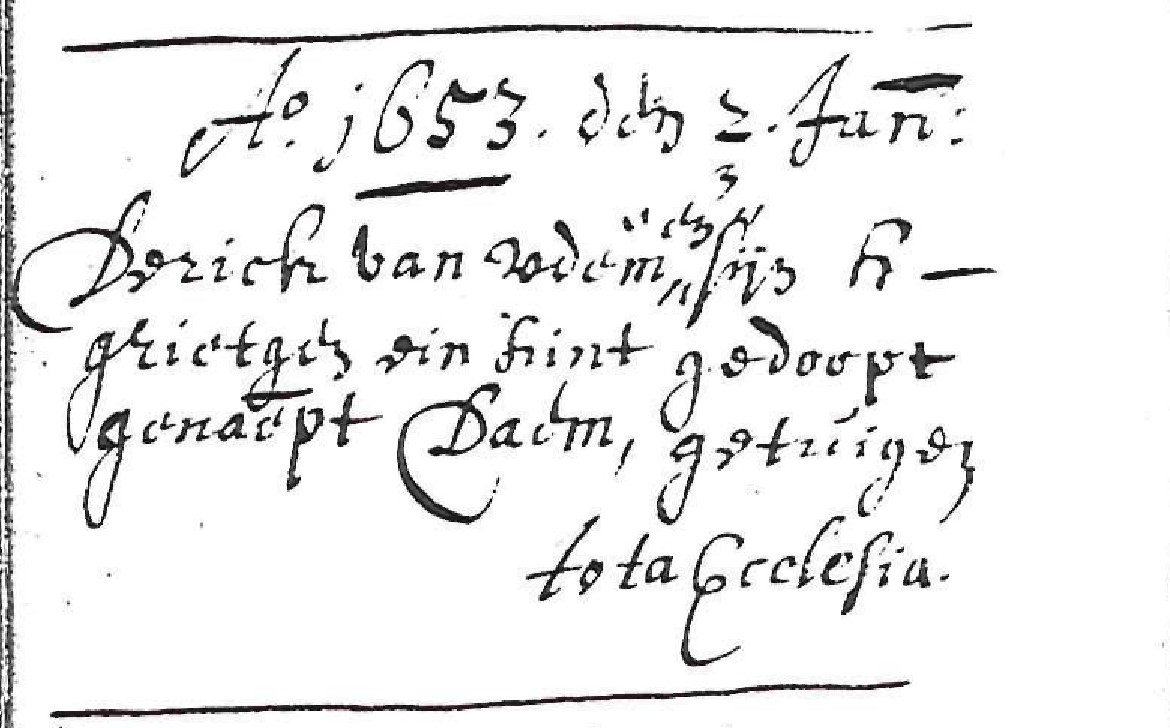 Aº. 1653. den 2. Jan:
Derick van Udem sijn h —
grietgen ein kint gedoopt
genaept Daem, getuigen
tota Ecclesia.